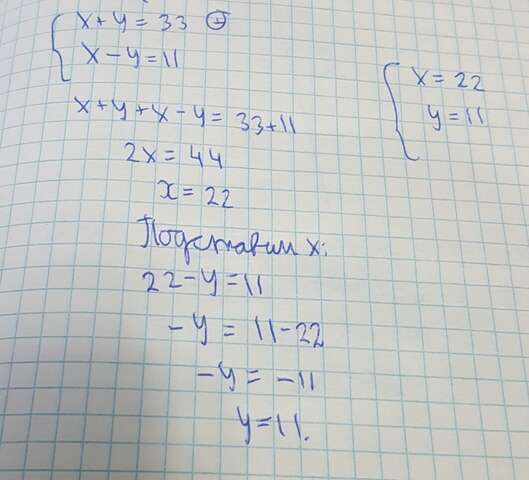 x+y=33 ⊕
x-y=11
x+y+x-y=33+11
2x=44
x=22
Подставим x:
22-y=11
-y=11-22
-y=-11
y=11.
x=22
y=11